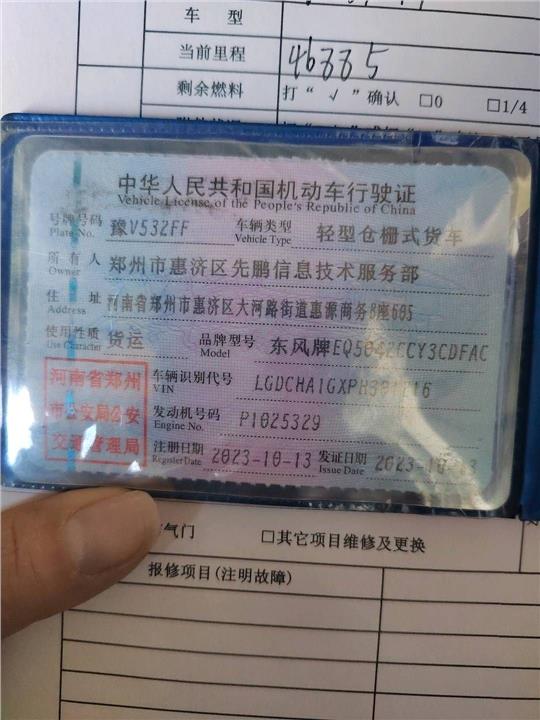 车 型
当前里程 46885
剩余燃料 打“√”确认 □0 □1/4
中华人民共和国机动车行驶证
Vehicle License of the People's Republic of China
号牌号码 豫V532FF 车辆类型 轻型仓栅式货车
Plate No. Vehicle Type
所有人 郑州市惠济区先鹏信息技术服务部
Owner
住 址 河南省郑州市惠济区大河路街道惠源商务B座605
Address
使用性质 货运 品牌型号 东风牌EQ5042CCY3CDFAC
Use Character Model
河南省郑州 车辆识别代号
市公安局公安 VIN
交通管理局 发动机号码 P1025329
Engine No.
注册日期 2023-10-13 发证日期 2023-10-13
Register Date Issue Date
气门 □其它项目维修及更换
报修项目(注明故障)